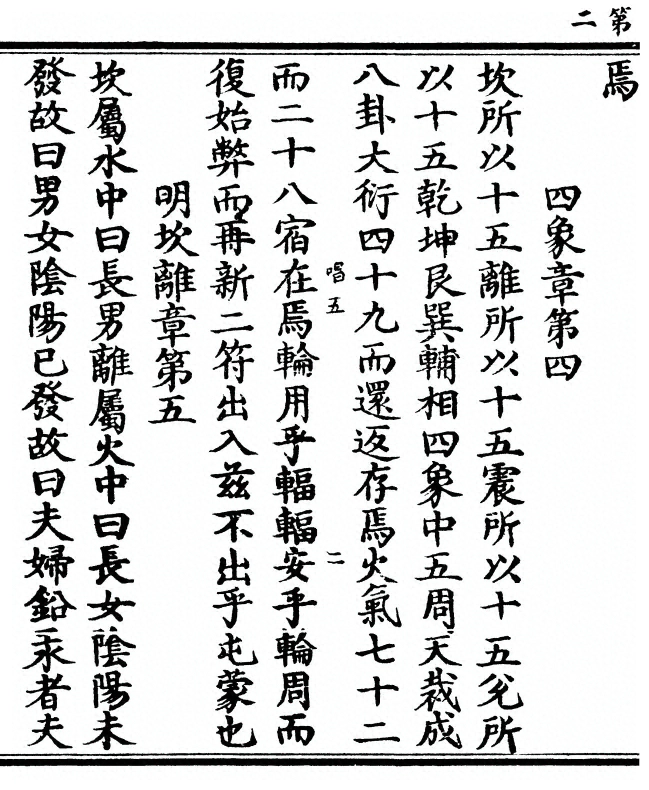 第二
焉
四象章第四
坎所以十五離所以十五震所以十五兊所
以十五乾坤艮巽輔相四象中五周天裁成
八卦大衍四十九而還返存焉火氣七十二
唱五
二
而二十八宿在焉輪用乎輻輻安乎輪周而
復始弊而再新二符出入兹不出乎屯蒙也
明坎離章第五
坎屬水中曰長男離屬火中曰長女陰陽未
發故曰男女陰陽已發故曰夫婦鉛汞者夫